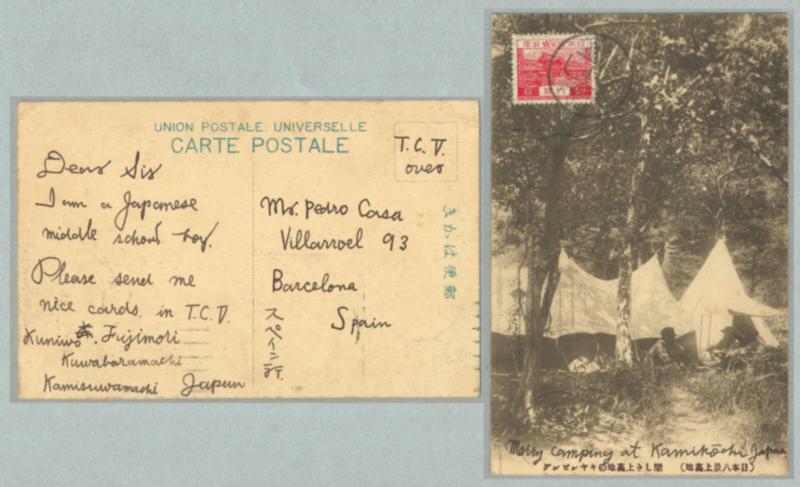 UNION POSTALE. UNIVERSELLE
CARTE POSTALE
T.C.V.
over
Dear Sir
I am a Japanese
middle school boy.
Please send me
nice cards in T.C.V.
Kuniwo Fujimori
Kuwabaramachi
Kamisuwamachi Japan
Mr. Pedro Casa
Villarroel 93
Barcelona
Spain
スペイン行
きかは便郵
Merry camping at Kamikōchi Japan
グンピンヤキの地高上きし樂 (地高上景八本日)